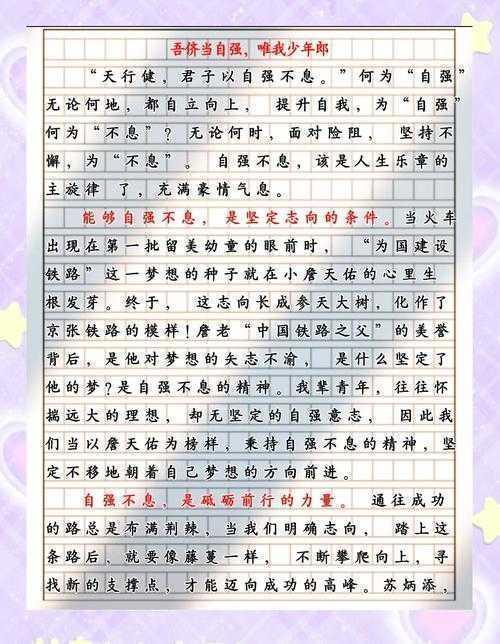 吾侪当自强，唯我少年郎
“天行健，君子以自强不息。”何为“自强”
无论何地，都自立向上， 提升自我，为“自强”
何为“不息”？ 无论何时，面对险阻， 坚持不
懈，为“不息”。 自强不息，该是人生乐章的
主旋律 了，充满豪情气息。
能够自强不息，是坚定志向的条件。当火车
出现在第一批留美幼童的眼前时， “为国建设
铁路”这一梦想的种子就在小詹天佑的心里生
根发芽。终于， 这志向长成参天大树，化作了
京张铁路的模样！詹老“中国铁路之父”的美誉
背后，是他对梦想的矢志不渝， 是什么坚定了
他的梦？是自强不息的精神。我辈青年，往往怀
揣远大的理想， 却无坚定的自强意志， 因此我
们当以詹天佑为榜样，秉持自强不息的精神，坚
定不移地朝着自己梦想的方向前进。
自强不息，是砥砺前行的力量。 通往成功
的路总是布满荆辣，当我们明确志向， 踏上这
条路后、就要像藤蔓一样， 不断攀爬向上，寻
找新的支撑点，才能迈向成功的高峰。苏炳添，